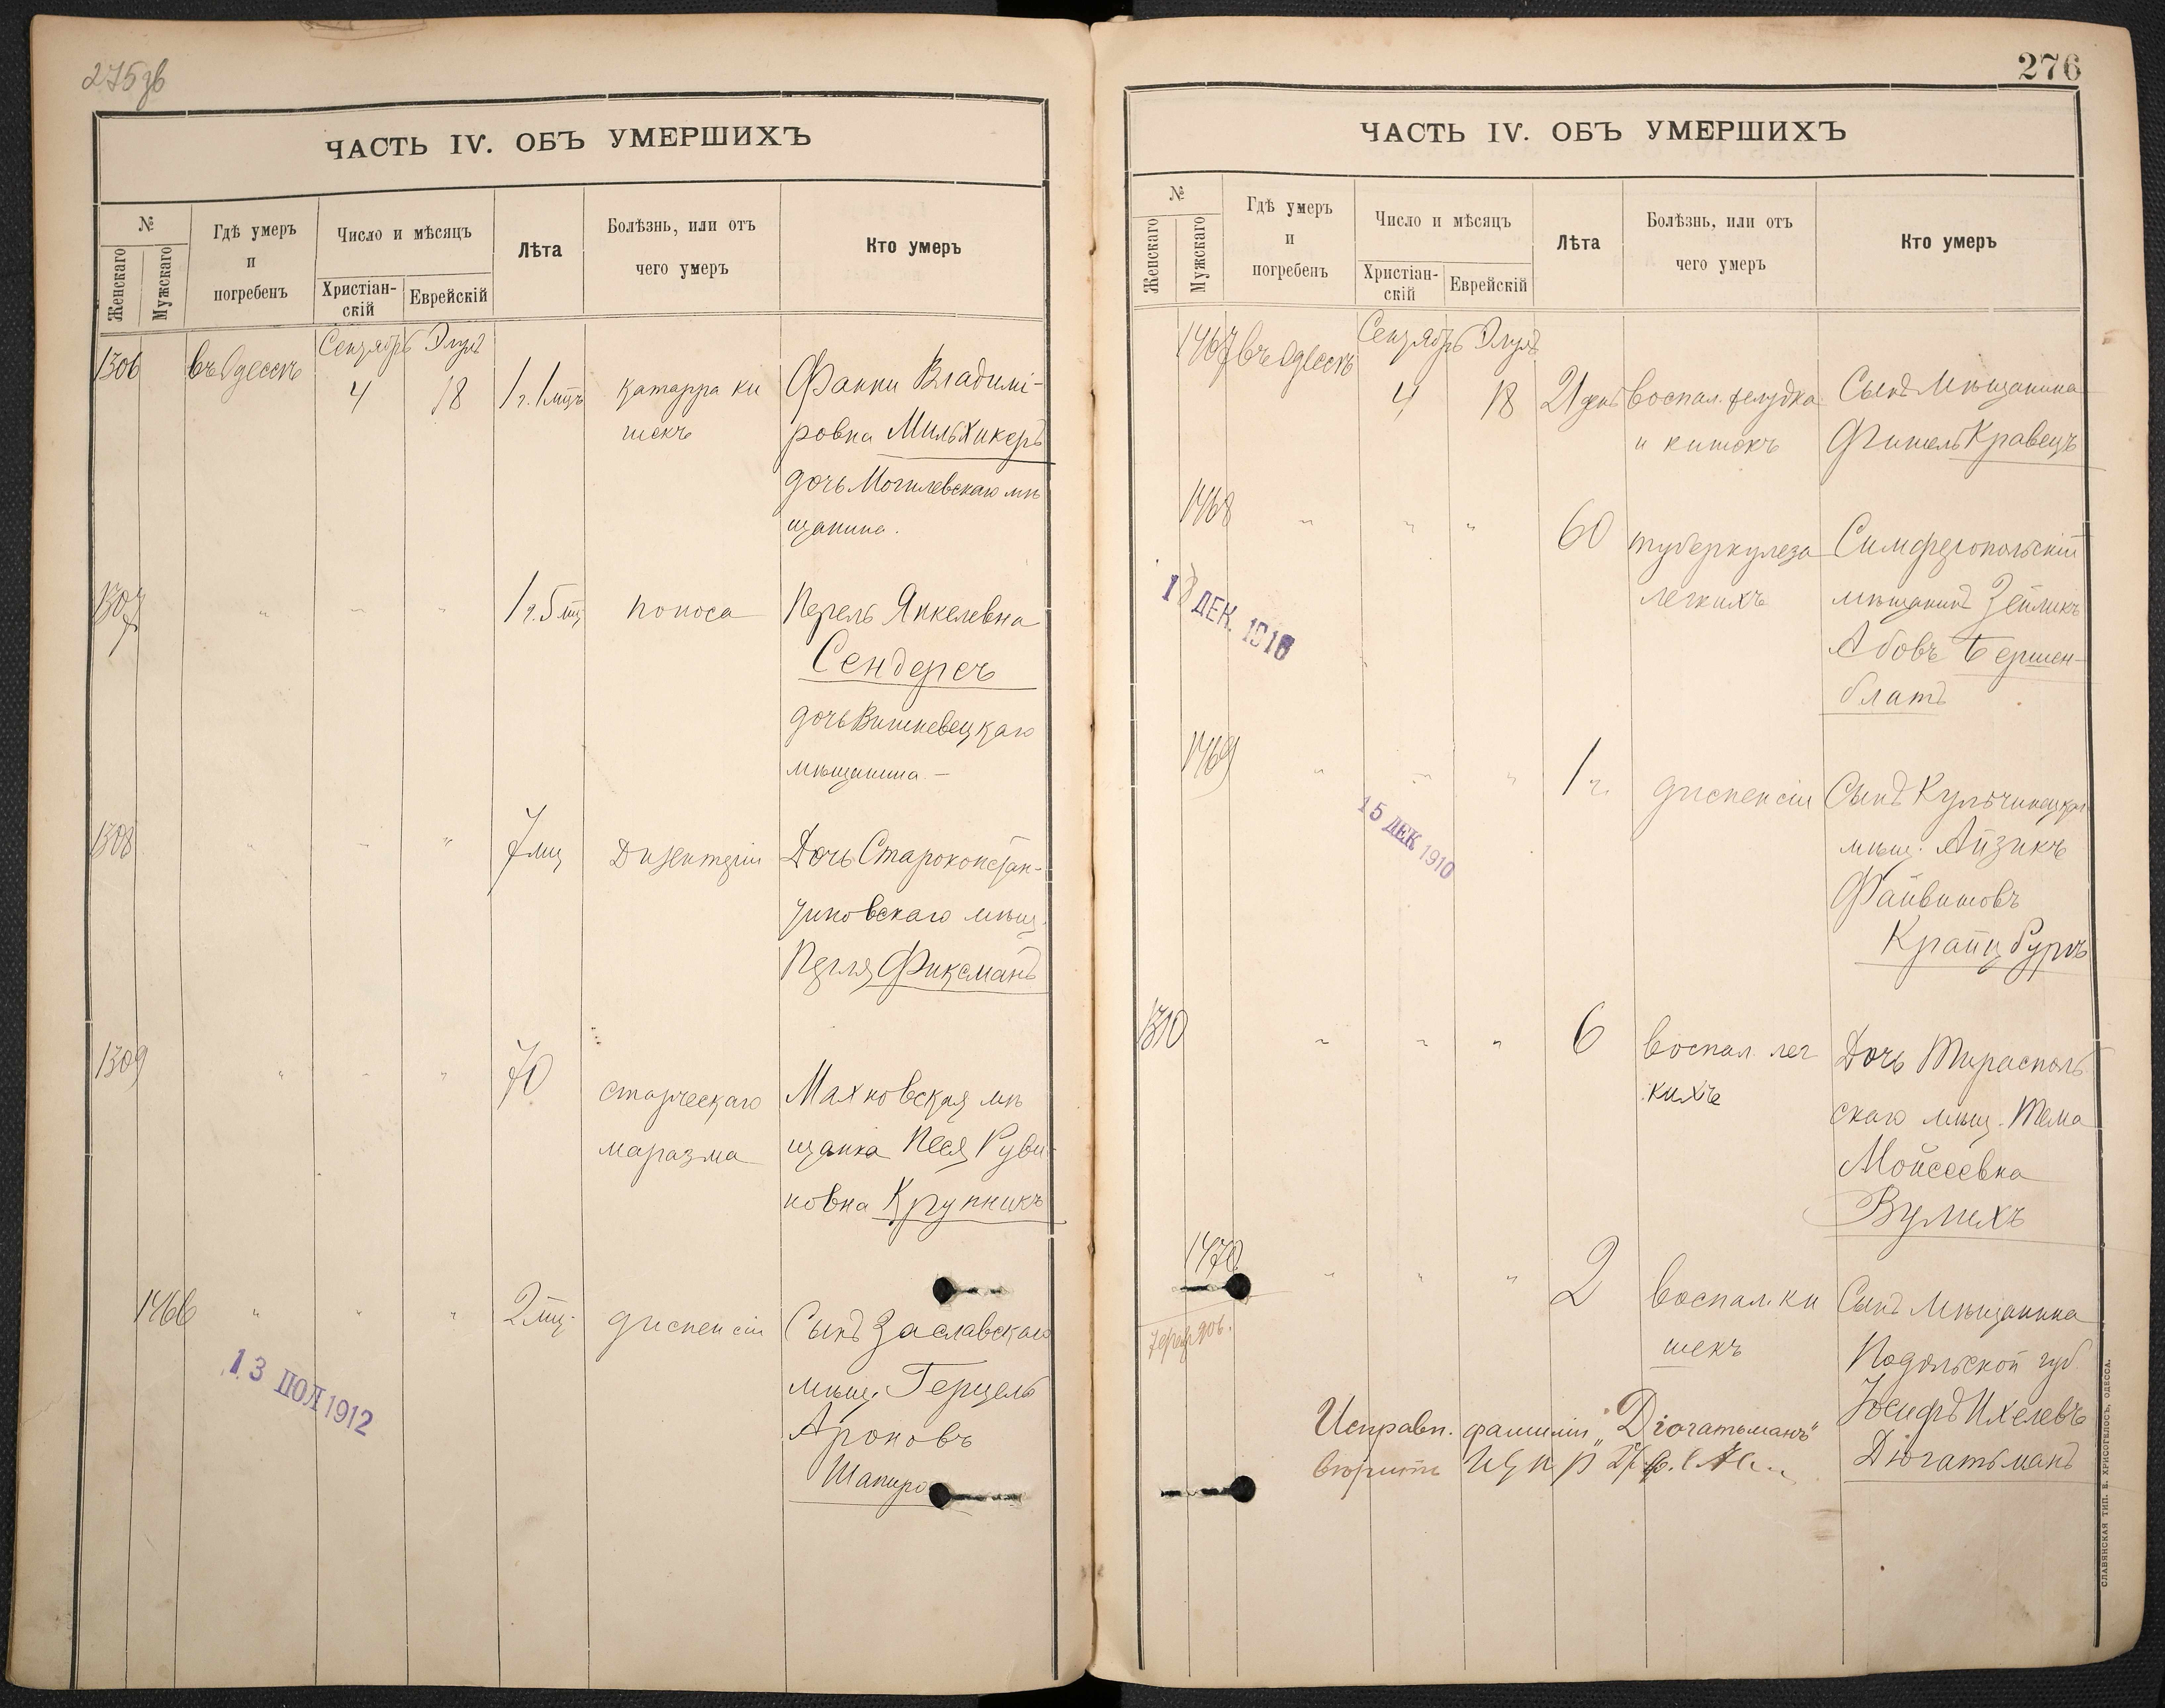 275 зв
ЧАСТЬ IV. ОБЪ УМЕРШИХЪ
№
Женскаго
Мужскаго
Гдѣ умеръ
и
погребенъ
Число и мѣсяцъ
Христіан-
скій
Еврейскій
Лѣта
Болѣзнь, или отъ
чего умеръ
Кто умеръ
Сентябрь Элулъ
1306 въ Одессѣ 4 18 1 г. 1 мцъ катарра ки
шекъ
Фанни Владимі-
ровна Мильхикеръ
дочь Могилевскаго мѣ
щанина.
1307 " " " 1 г. 5 мц поноса
Перель Янкелевна
Сендерсъ
дочь Вишневецкаго
мѣщанина –
1308 " " " 7 мц Дизентеріи
Дочь Староконстан-
тиновскаго мѣщ.
Перля Фиксманъ
1309 " " " 70 старческаго
маразма
Махновская мѣ
щанка Песя Руви-
новна Крупникъ
1466 " " " 2 мц. диспепсіи
Сынъ Заславскаго
мѣщ. Герцель
Ароновъ
Шапиро
13 ІЮЛ 1912
276
ЧАСТЬ IV. ОБЪ УМЕРШИХЪ
№
Женскаго
Мужскаго
Гдѣ умеръ
и
погребенъ
Число и мѣсяцъ
Христіан-
скій
Еврейскій
Лѣта
Болѣзнь, или отъ
чего умеръ
Кто умеръ
Сентябрь Элулъ
1467 въ Одессѣ 4 18 21 дня воспал. желудка
и кишокъ
Сынъ Мѣщанина
Фишель Кравецъ
1468 " " " 60 туберкулеза
легкихъ
Симферопольскій
мѣщанинъ Зейликъ
Абовъ Бершен-
блатъ
18 ДЕК. 1910
1469 " " " 1 г. диспепсіи
Сынъ Кульчинецкаго
мѣщ. Айзикъ
Файвишовъ
Крайцбургъ
15 ДЕК 1910
1310 " " " 6 воспал. лег
кихъ
Дочь Тирасполь
скаго мѣщ. Тема
Мойсеевна
Вулихъ
1470 " " " 2 воспал. ки
шекъ
Сынъ Мѣщанина
Подольской губ.
Іосифъ Ихелевъ
Дюгатьманъ
Исправл. фамиліи „Дюгатьманъ"
вѣрить
СЛАВЯНСКАЯ ТИП. Е. ХРИСОГЕЛОСЪ, ОДЕССА.